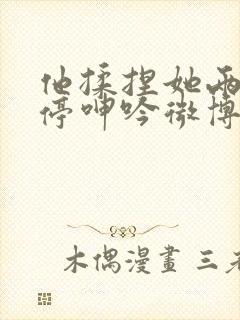 他揉捏她两
停呻吟微博
木偶漫畫 三